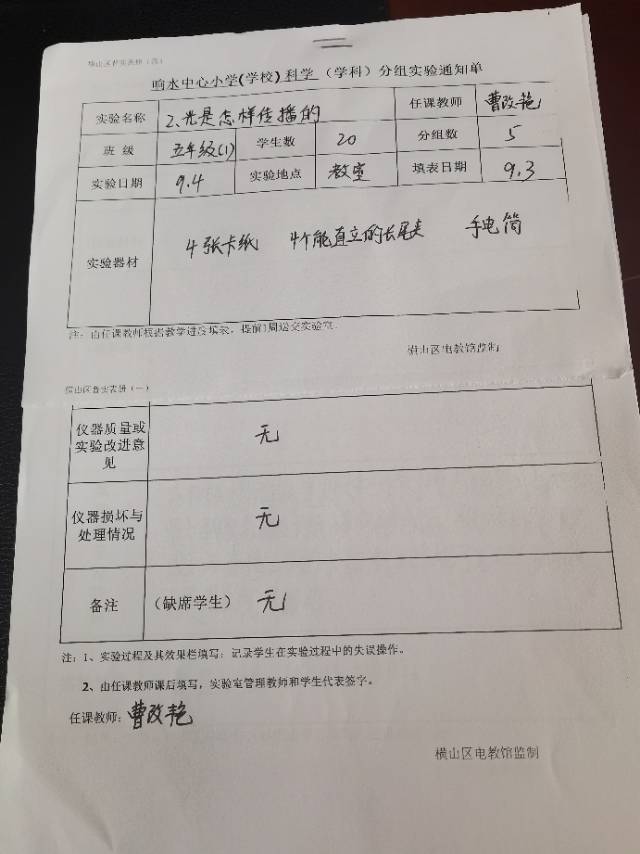 横山区普实表册（五）
响水中心小学(学校)科学（学科）分组实验通知单
实验名称 2、光是怎样传播的 任课教师 曹改艳
班 级 五年级(1) 学生数 20 分组数 5
实验日期 9.4 实验地点 教室 填表日期 9.3
实验器材 4张卡纸 4个能直立的长尾夹 手电筒
注：由任课教师根据教学进度填表，提前1周送交实验室.
横山区电教馆监制
横山区普实表册（一）
仪器质量或
实验改进意
见
无
仪器损坏与
处理情况
无
备注 （缺席学生） 无
注：1、实验过程及其效果栏填写：记录学生在实验过程中的失误操作。
2、由任课教师课后填写，实验室管理教师和学生代表签字。
任课教师: 曹改艳
横山区电教馆监制